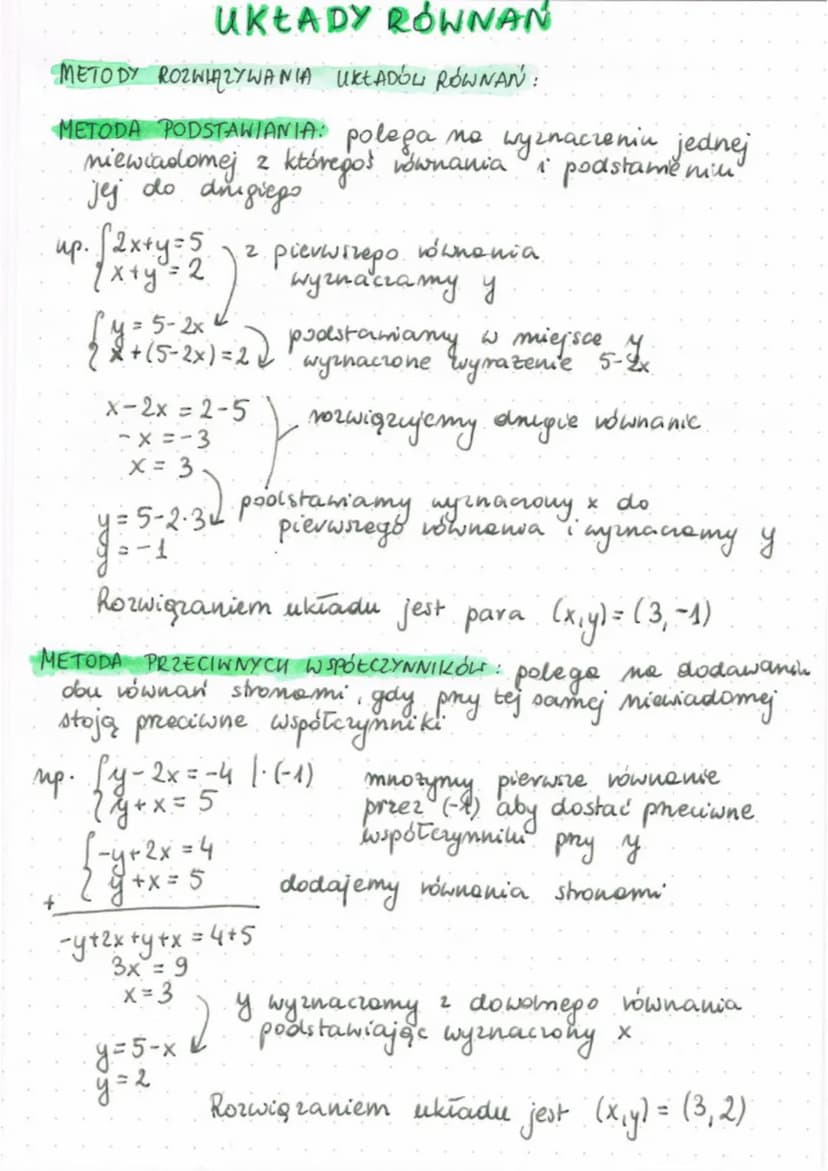 UKŁADY RÓWNAŃ
METODY ROZWIĄZYWANIA UKŁADÓW RÓWNAŃ:
METODA PODSTAWIANIA: polega na wyznaczeniu jednej
niewiadomej z któregoś równania i podstawieniu
jej do drugiego
np. { 2x+y=5 z pierwszego równania
x+y=2 wyznaczamy y
{ y=5-2x podstawiamy w miejsce y
x+(5-2x)=2 wyznaczone wyrażenie 5-2x
x-2x=2-5 rozwiązujemy drugie równanie
-x=-3
x=3
podstawiamy wyznaczony x do
y=5-2·3 pierwszego równania i wyznaczamy y
y=-1
Rozwiązaniem układu jest para (x,y)=(3,-1)
METODA PRZECIWNYCH WSPÓŁCZYNNIKÓW: polega na dodawaniu
obu równań stronami, gdy przy tej samej niewiadomej
stoją przeciwne współczynniki
np. { y-2x=-4 |·(-1) mnożymy pierwsze równanie
y+x=5 przez (-1) aby dostać przeciwne
współczynniki przy y
{ -y+2x=4
y+x=5 dodajemy równania stronami
+
-y+2x+y+x=4+5
3x=9
x=3 y wyznaczamy z dowolnego równania
podstawiając wyznaczony x
y=5-x
y=2
Rozwiązaniem układu jest (x,y)=(3,2)